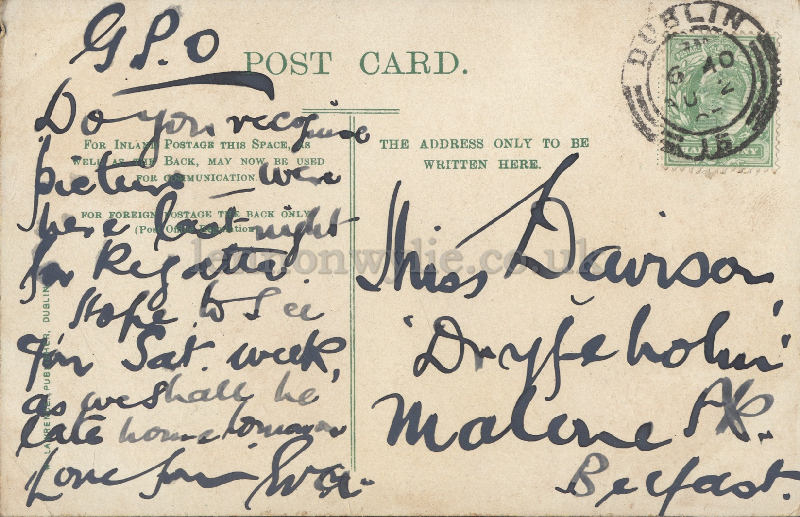 G.P.O
POST CARD.
Do you recognise
FOR INLAND POSTAGE THIS SPACE, AS
WELL AS THE BACK, MAY NOW BE USED
FOR COMMUNICATION.
picture — were
FOR FOREIGN POSTAGE THE BACK ONLY
(Post Office Regulation)
here last night
for Regatta.
Hope to See
you Sat. week,
as we shall be
late home tomorrow
Love from
LAWRENCE, PUBLISHER, DUBLIN
THE ADDRESS ONLY TO BE
WRITTEN HERE.
Miss Davison
'Dryfeholm'
Malone Pk.
Belfast.
DUBLIN
15
lennonwylie.co.uk